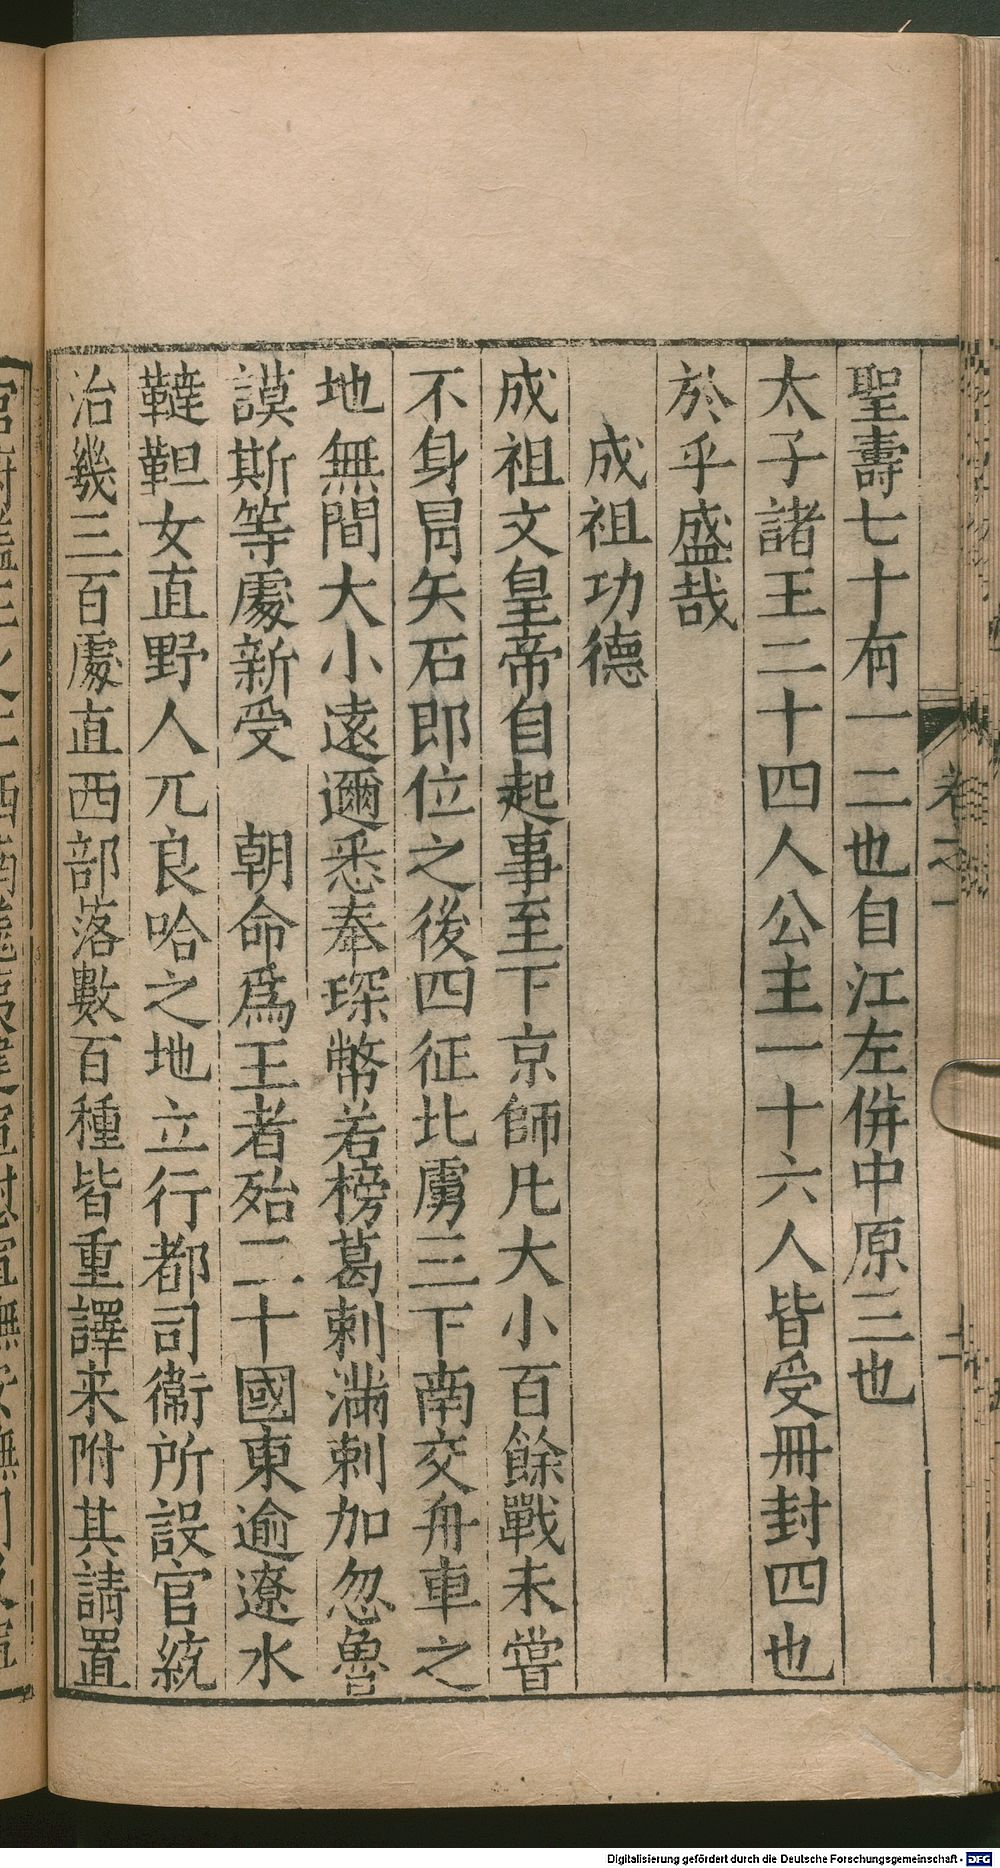 聖壽七十有一二也自江左併中原三也
太子諸王二十四人公主一十六人皆受冊封四也
於乎盛哉
成祖功德
成祖文皇帝自起事至下京師凡大小百餘戰未嘗
不身冐矢石即位之後四征北虜三下南交舟車之
地無間大小遠邇悉奉琛幣若榜葛剌滿剌加忽魯
謨斯等處新受　朝命爲王者殆二十國東逾遼水
韃靼女直野人兀良哈之地立行都司衞所設官統
治幾三百處直西部落數百種皆重譯来附其請置
卷之一
Digitalisierung gefördert durch die Deutsche Forschungsgemeinschaft - DFG